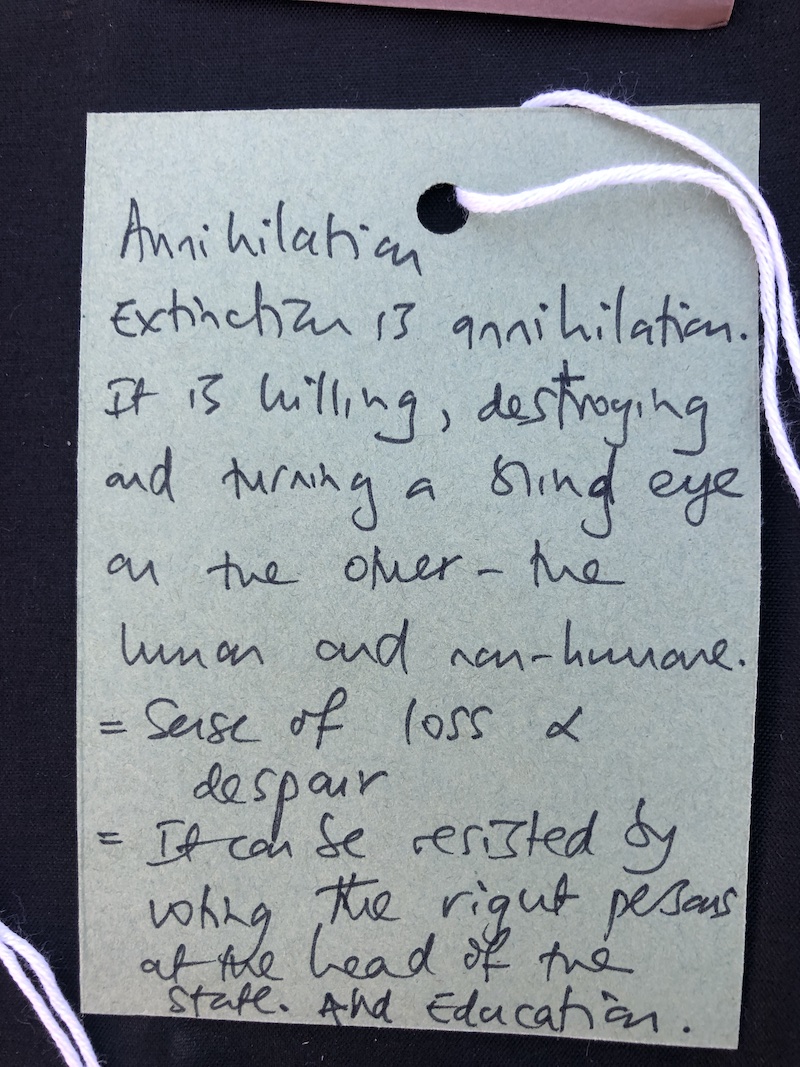 Annihilation
Extinction is annihilation.
It is killing, destroying
and turning a bling eye
on the other - the
human and non-humane.
= Sense of loss &
despair
= It can be resisted by
voting the right persons
at the head of the
state. And Education.